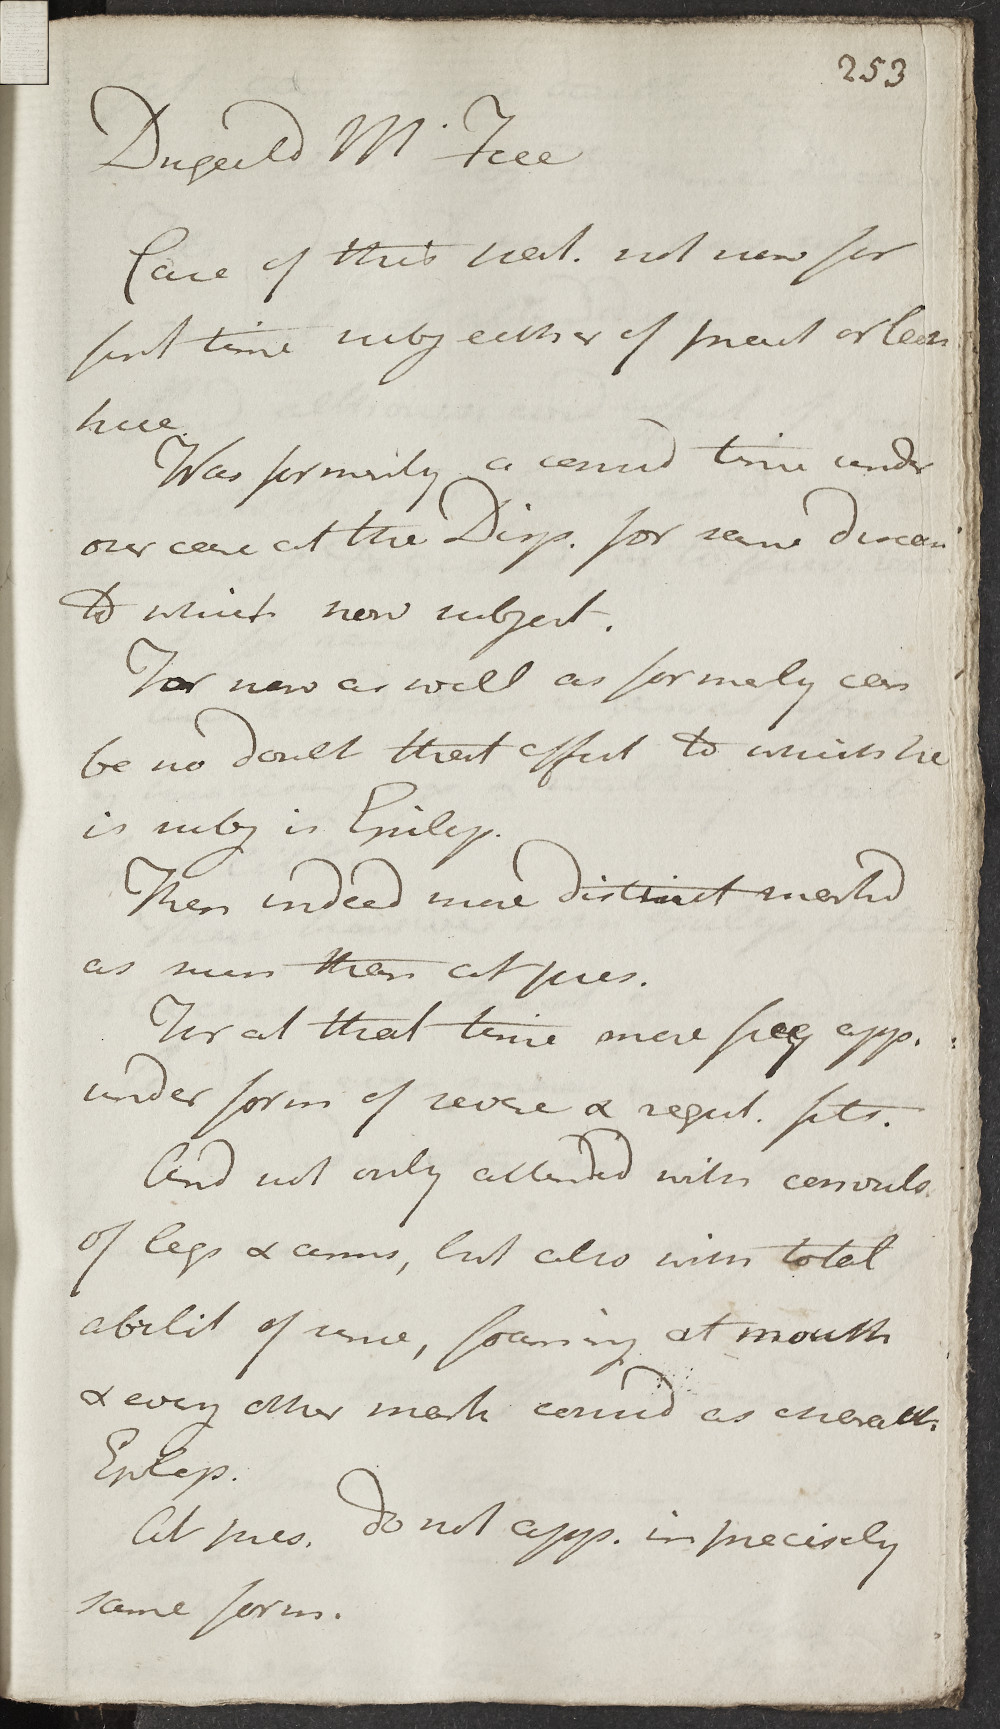 253
Dugald Mc Fee
Case of this pat. not now for
first time subj either of pract or lect
here.
Was formerly a consid time under
our care at the Disp. for same diseas
to which now subject.
For now as well as formerly can
be no doubt that affect to which he
is subj is Epilep.
Then indeed more distinct marked
as such than at pres.
For at that time more freq app.
under form of severe & regul. fits.
And not only attended with convuls.
of legs & arms, but also with total
abolit of sense, foaming at mouth
& every other mark consid as charact.
Epilep.
At pres. do not app. in precisely
same form.